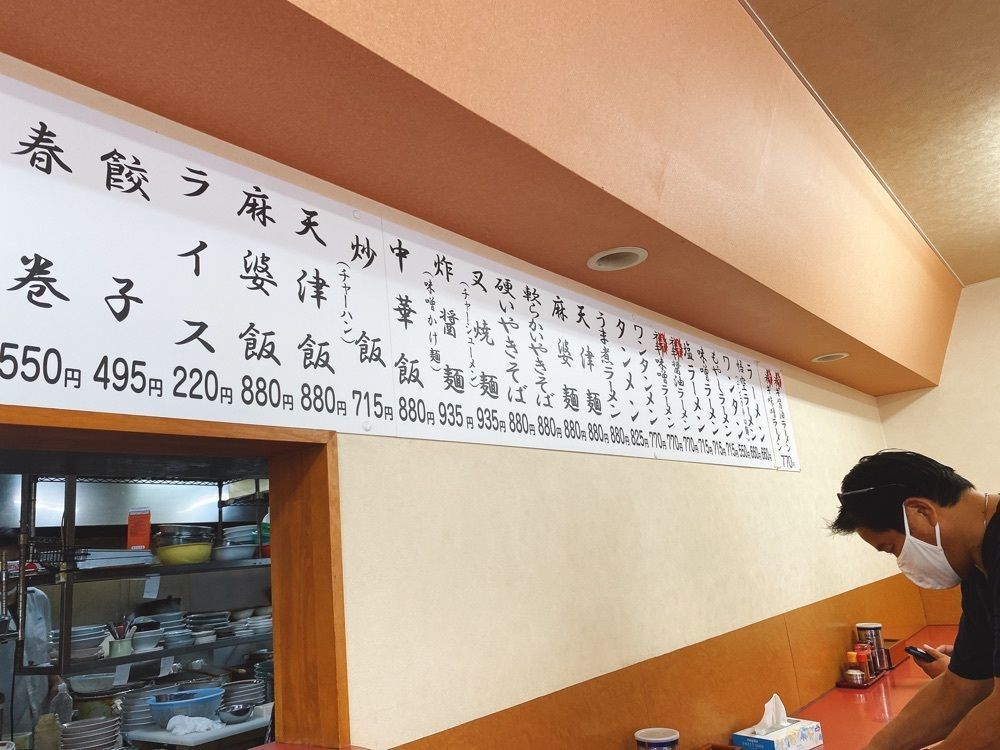 醤油ラーメン 770円
ラーメン 660円
ラーメン 660円
ワンタン 550円
もやしラーメン 715円
味噌ラーメン 715円
塩ラーメン 715円
醤油ラーメン 770円
味噌ラーメン 770円
ワンタンメン 770円
タンメン 825円
うま煮ラーメン 880円
天津麺 880円
麻婆麺 880円
軟らかいやきそば 880円
硬いやきそば 880円
叉焼麺 (チャーシューメン) 935円
炸醤麺 (味噌かけ麺) 935円
中華飯 880円
炒飯 (チャーハン) 715円
天津飯 880円
麻婆飯 880円
ライス 220円
餃子 495円
春巻 550円